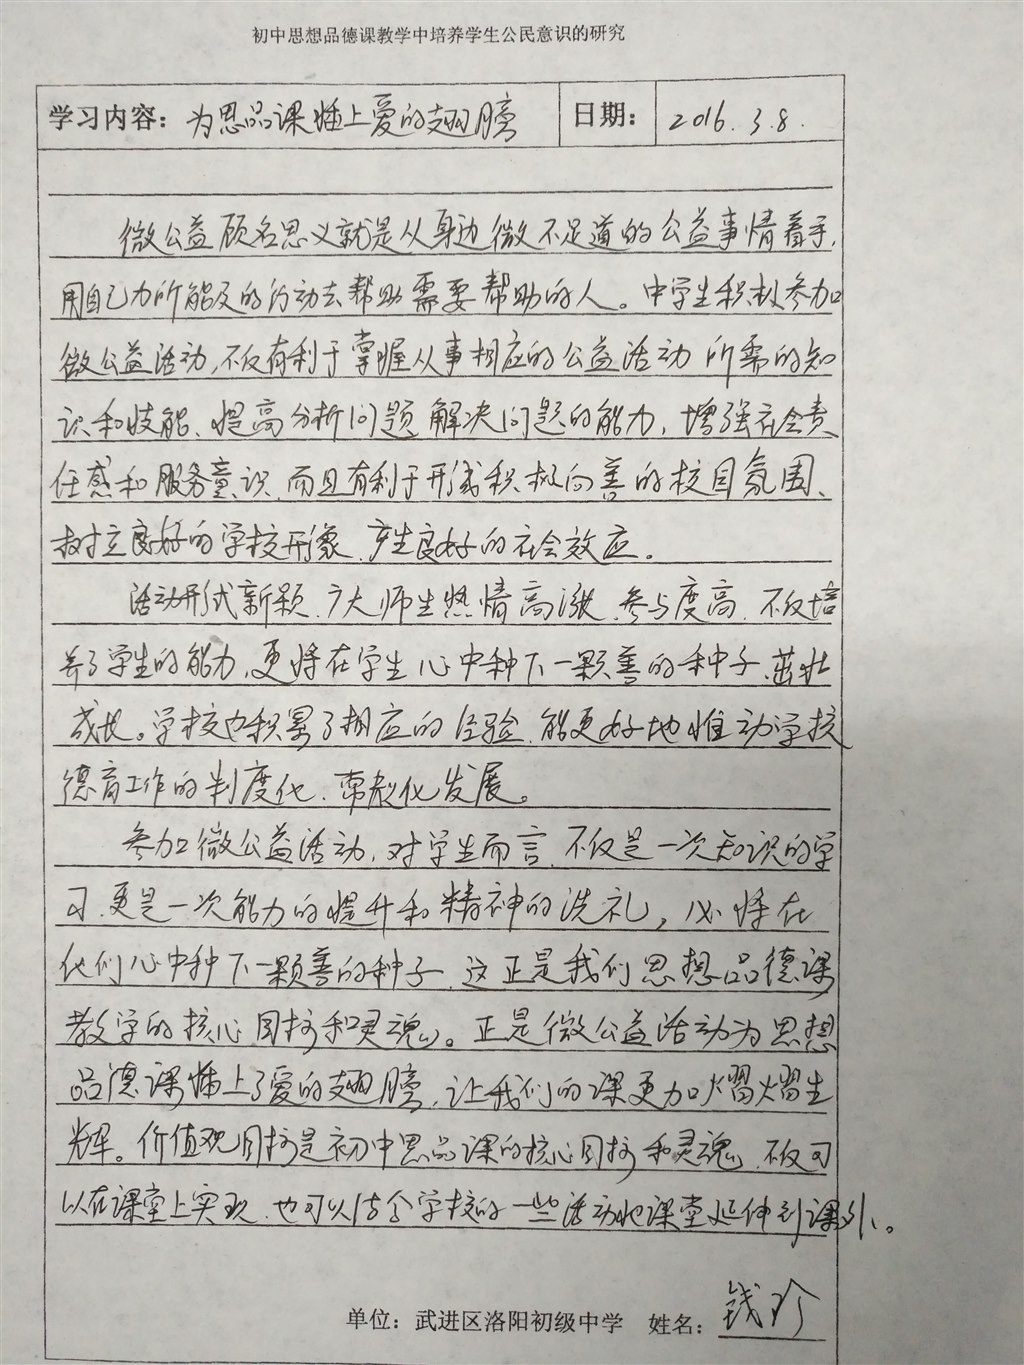 初中思想品德课教学中培养学生公民意识的研究
学习内容：为思品课插上爱的翅膀 日期：2016.3.8.
微公益顾名思义就是从身边微不足道的公益事情着手，
用自己力所能及的行动去帮助需要帮助的人。中学生积极参加
微公益活动，不仅有利于掌握从事相应的公益活动所需的知
识和技能、提高分析问题 解决问题的能力，增强社会责
任感和服务意识，而且有利于形成积极向善的校园氛围、
树立良好的学校形象，产生良好的社会效应。
活动形式新颖，广大师生热情高涨，参与度高，不仅培
养了学生的能力，更将在学生心中种下一颗善的种子，茁壮
成长。学校也积累了相应的经验，能更好地推动学校
德育工作的制度化、常态化发展。
参加微公益活动，对学生而言，不仅是一次知识的学
习，更是一次能力的提升和精神的洗礼，必将在
他们心中种下一颗善的种子，这正是我们思想品德课
教学的核心目标和灵魂。正是微公益活动为思想
品德课插上了爱的翅膀，让我们的课更加熠熠生
辉。价值观目标是初中思品课的核心目标和灵魂，不仅可
以在课堂上实现，也可以结合学校的一些活动把课堂延伸到课外。
单位：武进区洛阳初级中学 姓名：钱珍